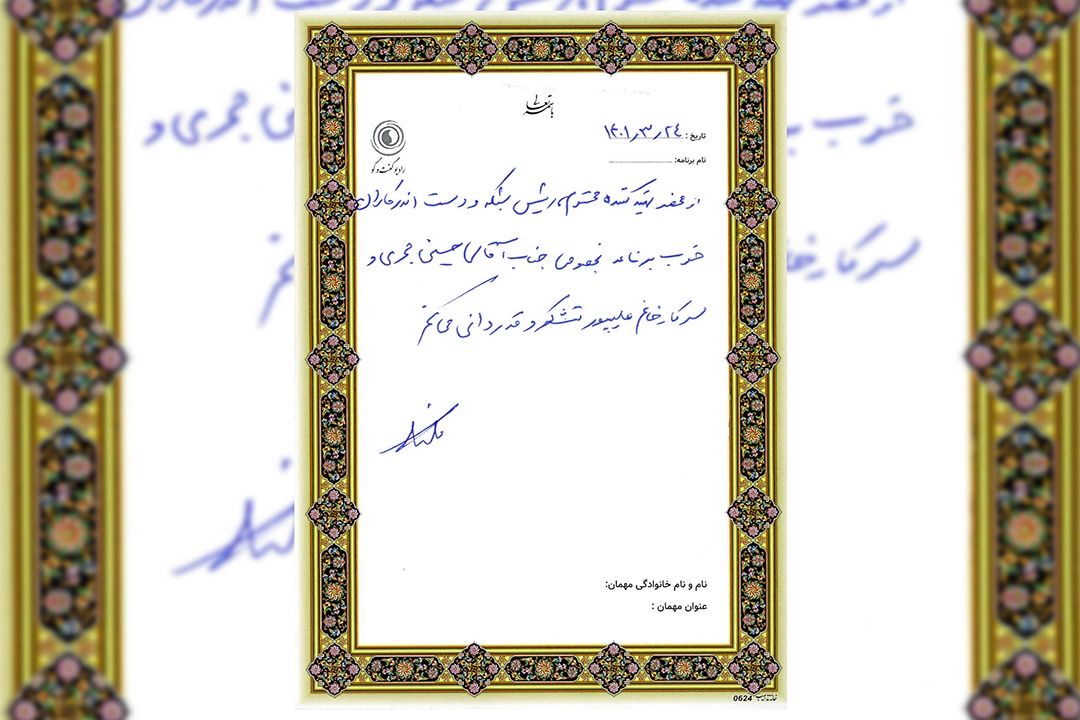 باسمه تعالی
تاریخ : ۱۴۰۱٫۳٫۲۴
نام برنامه:
رادیو گفت و گو
از تهیه کننده محترم، رئیس شبکه و دست اندرکاران
خوب برنامه بخصوص جناب آقای حسینی مجری و
سرکار خانم علیپور تشکر و قدردانی می کنم
نام و نام خانوادگی مهمان:
عنوان مهمان :
0624